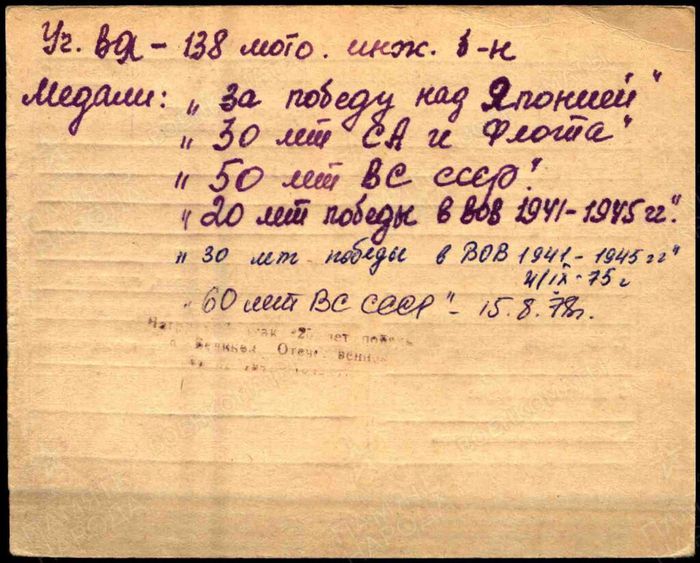 Уч. ВЯ - 138 мото. инж. б-н
Медали: „За победу над Японией"
„30 лет СА и Флота"
„50 лет ВС СССР."
„20 лет победы в ВОВ 1941-1945 гг."
„30 лет победы в ВОВ 1941-1945 гг"
4/IX-75 г
„60 лет ВС СССР" - 15.8.78г.
знак «25 лет победы
в Великой Отечественной